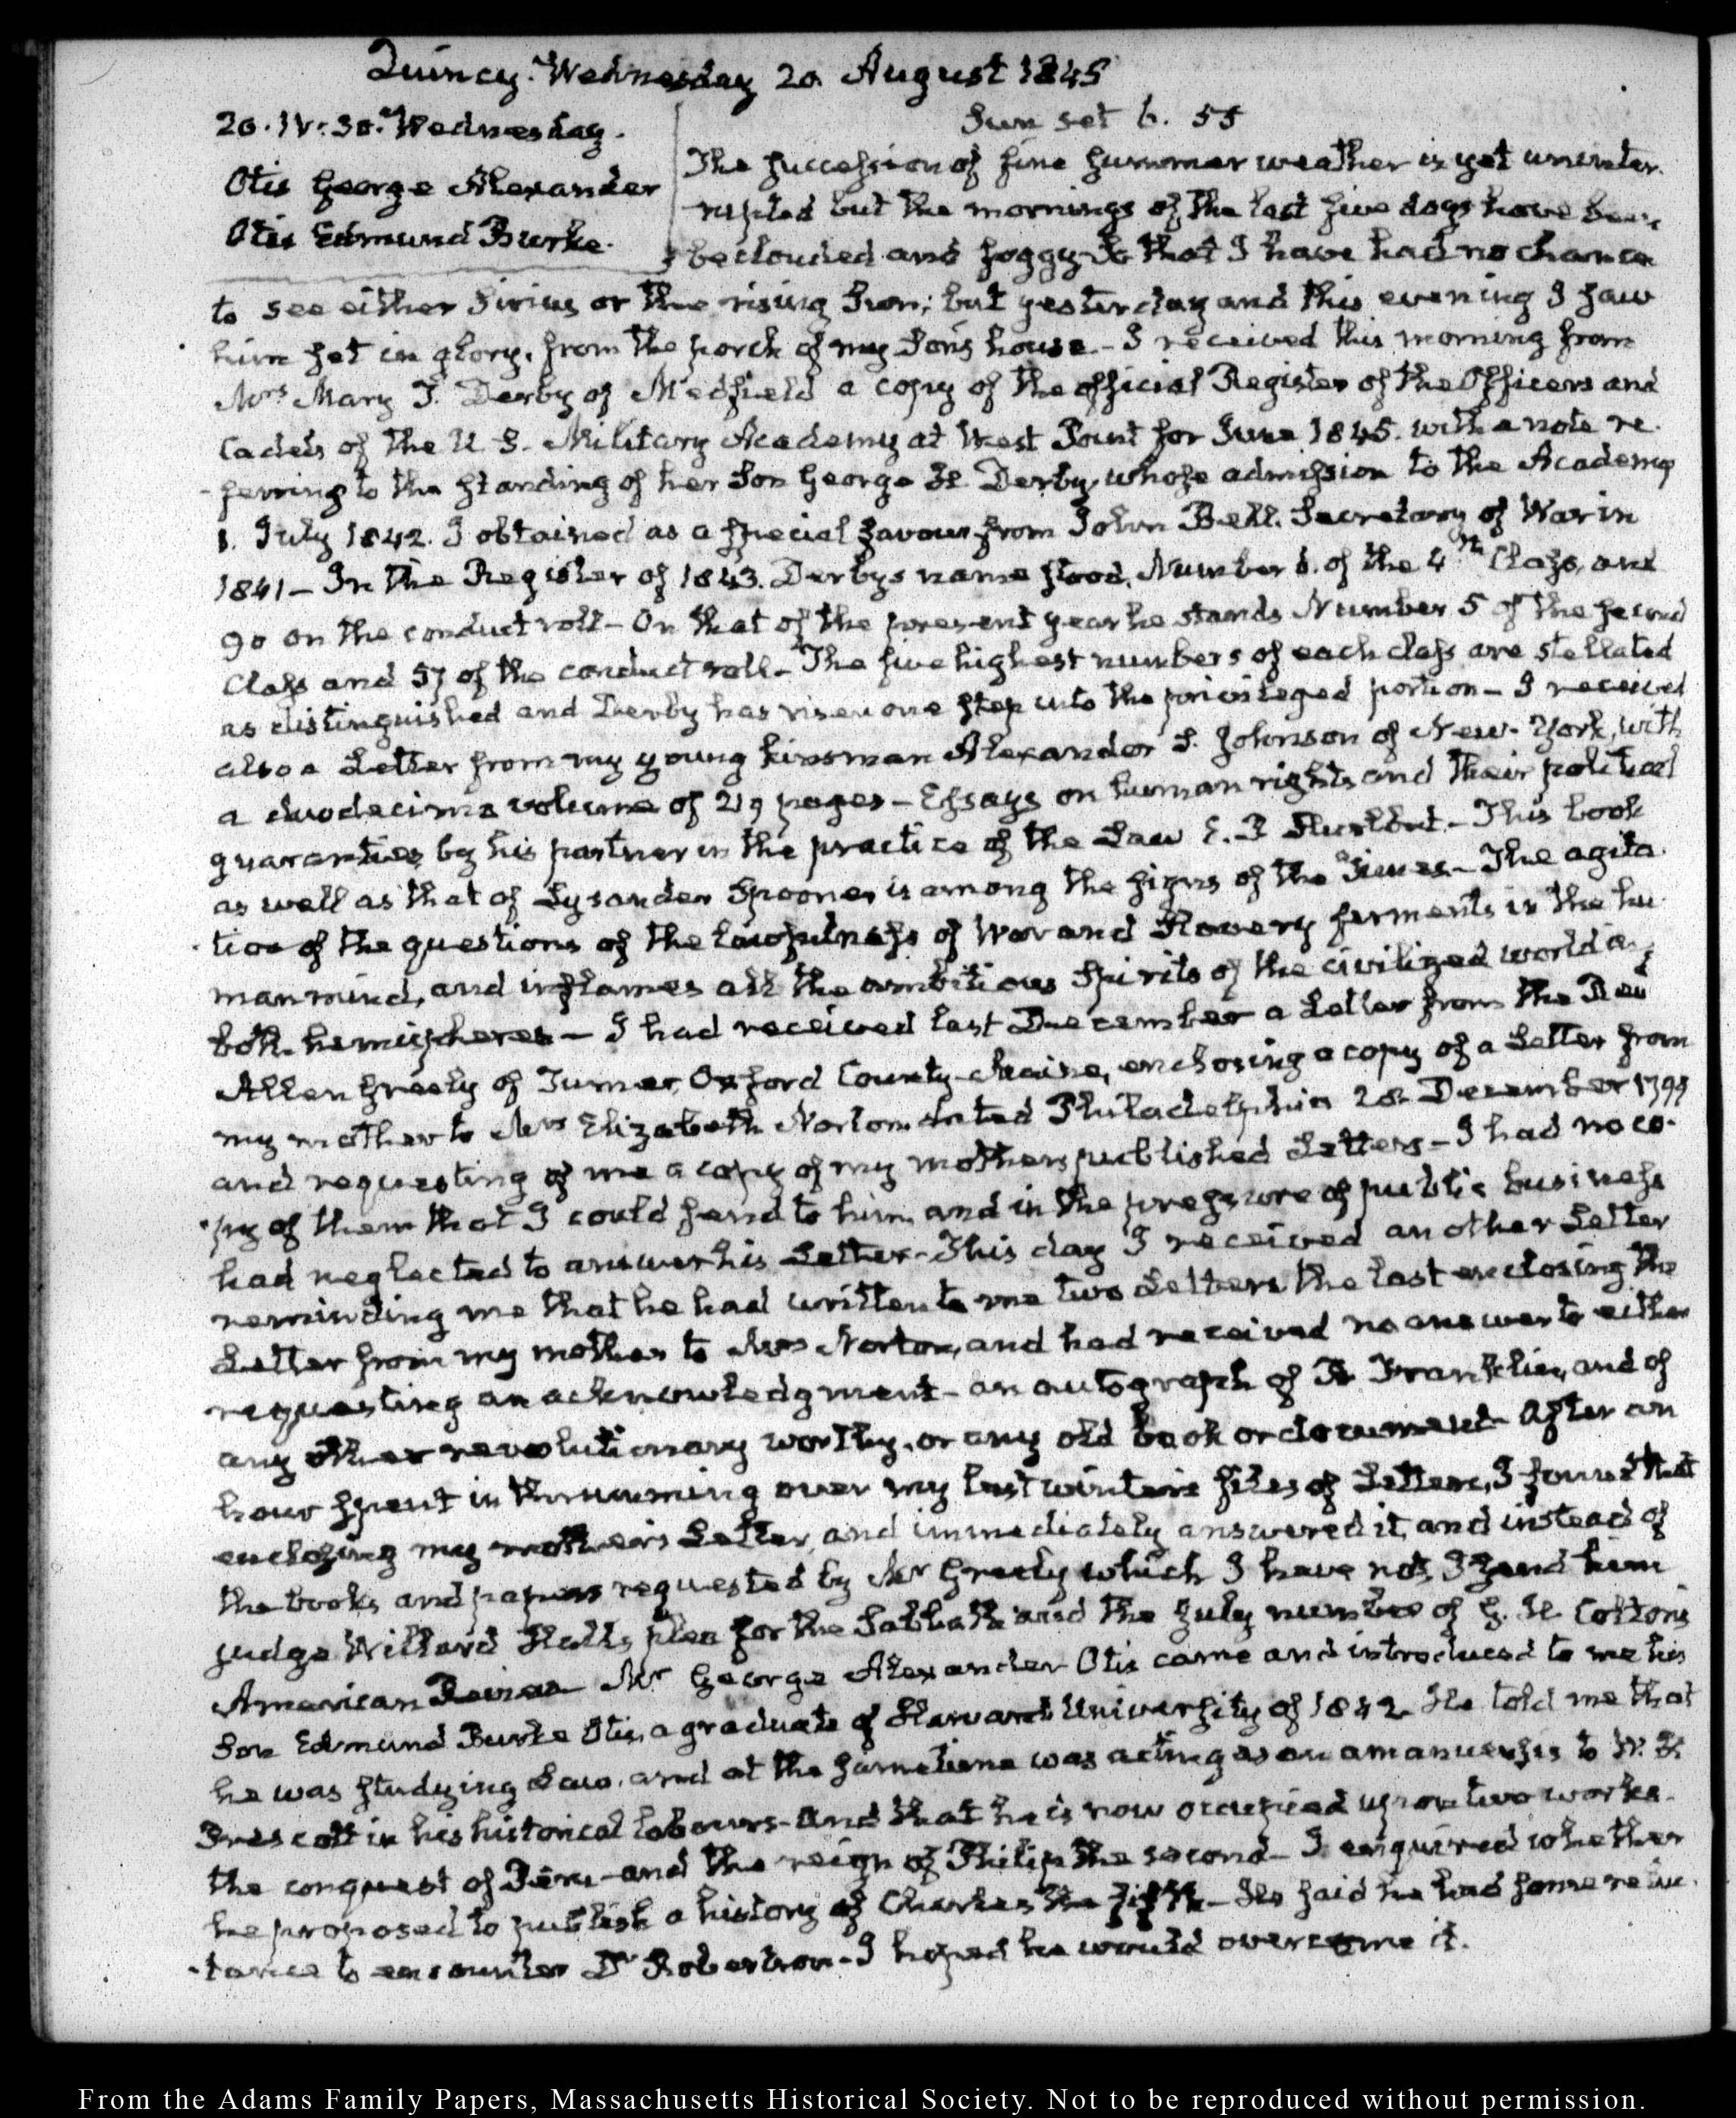 Quincy. Wednesday 20. August 1845
20. IV: 30. Wednesday.
Otis George Alexander
Otis Edmund Burke.
Sun set 6. 55
The succession of fine summer weather is yet uninter-
rupted but the mornings of the last five days have been
beclouded and foggy so that I have had no chance
to see either Sirius or the rising Sun; but yesterday and this evening I saw
him set in glory, from the porch of my Son's house - I received this morning from
Mrs. Mary T. Derby of Medfield a copy of the official Register of the Officers and
Cadets of the U. S. Military Academy at West Point for June 1845. with a note re-
-ferring to the standing of her Son George H. Derby, whose admission to the Academy
1. July 1842. I obtained as a special favour from John Bell. Secretary of War in
1841 - In the Register of 1843. Derby's name stood, Number 6. of the 4th Class, and
90 on the conduct roll - On that of the present year he stands Number 5 of the second
Class and 57 of the conduct roll - The five highest numbers of each class are stellated
as distinguished and Derby has risen one step into the privileged portion - I received
also a Letter from my young kinsman Alexander S. Johnson of New-York, with
a duodecimo volume of 219 pages - Essays on human rights and their political
guaranties by his partner in the practice of the Law E. P. Hurlbut. - This book
as well as that of Lysander Spooner is among the signs of the Times - The agita-
tion of the questions of the lawfulness of War and Slavery ferments in the hu-
man mind, and inflames all the ambitious Spirits of the civilized world in
both hemispheres - I had received last December a Letter from the Revd.
Allen Greely of Turner, Oxford County Maine, enclosing a copy of a Letter from
my mother to Mrs Elizabeth Norton dated Philadelphia 28 December 1799
and requesting of me a copy of my mothers published Letters - I had no co-
-py of them that I could send to him, and in the pressure of public business
had neglected to answer his Letter - This day I received another Letter
reminding me that he had written to me two Letters the last enclosing the
Letter from my mother to Mrs Norton, and had received no answer to either
requesting an acknowledgment - an autograph of Dr Franklin, and of
any other revolutionary worthy, or any old book or document After an
hour spent in thrumming over my last winters files of Letters, I found that
enclosing my mother's Letter, and immediately answered it, and instead of
the books and papers requested by Mr Greely which I have not, I send him
Judge Willard Hall's plea for the Sabbath and the July number of G. H. Colton's
American Review Mr George Alexander Otis came and introduced to me his
Son Edmund Burke Otis, a graduate of Harvard University of 1842. He told me that
he was studying Law, and at the same time was acting as an amanuensis to W. H.
Prescott in his historical labours - and that he is now occupied upon two works -
the conquest of Peru - and the reign of Philip the second - I enquired whether
he proposed to publish a history of Charles the fifth - He said he had some reluc-
-tance to encounter Dr Robertson - I hoped he would overcome it.
From the Adams Family Papers, Massachusetts Historical Society. Not to be reproduced without permission.